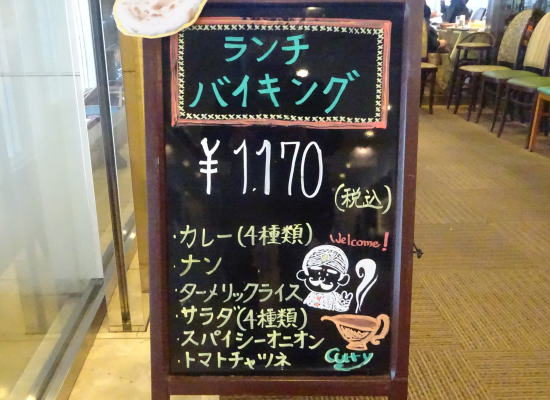 ランチ
バイキング
￥1.170
(税込)
・カレー(4種類)
Welcome!
・ナン
・ターメリックライス
・サラダ(4種類)
・スパイシーオニオン
・トマトチャツネ
Curry